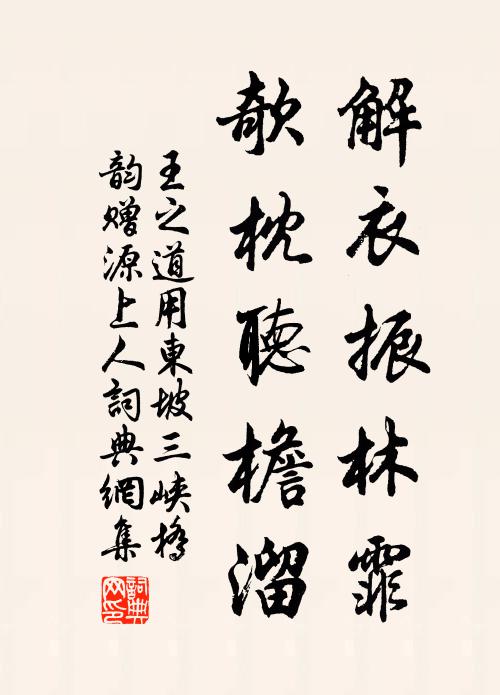 解衣振林霏
欹枕聽檐溜
王之道用東坡三峽橋
韵贈源上人詞典網集
詞典网印